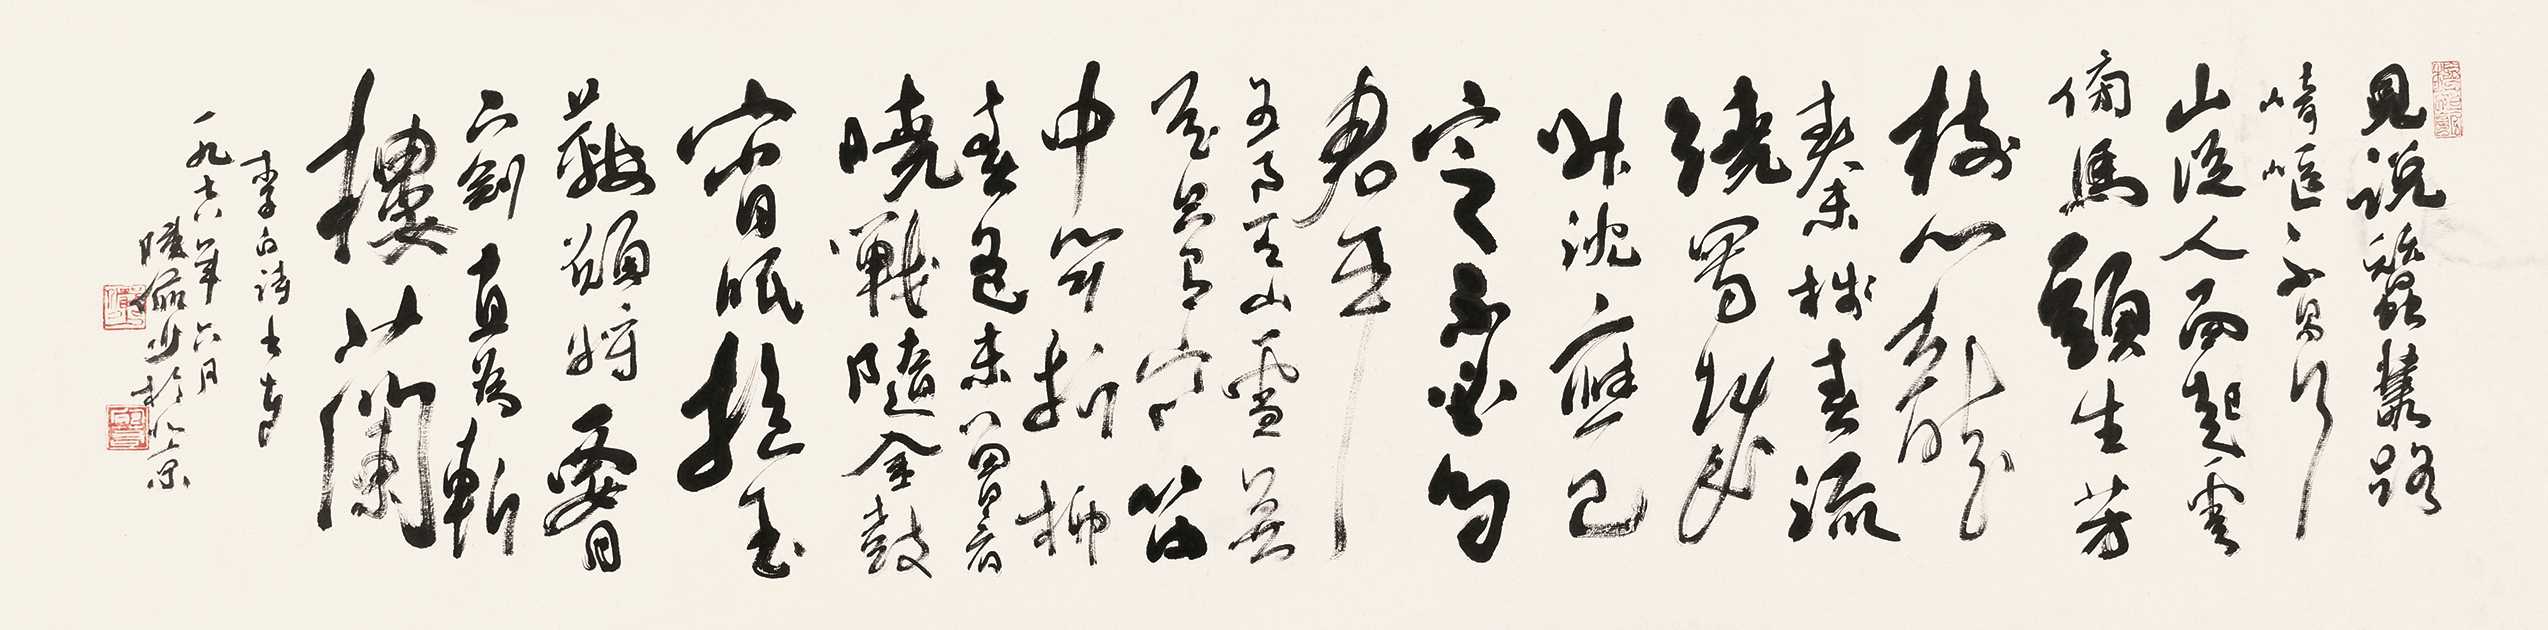 見說蠶叢路
崎嶇不易行
山從人面起雲
傍馬頭生芳
樹籠
秦棧春流
繞蜀城
升沈應已
定不必問
君平
五月天山雪無
花只有寒笛
中聞折柳
春色未曾看
曉戰隨金鼓
宵眠抱玉
鞍願將腰
下劍直為斬
樓蘭
李白詩
一九七八年六月
陸儼少於北京